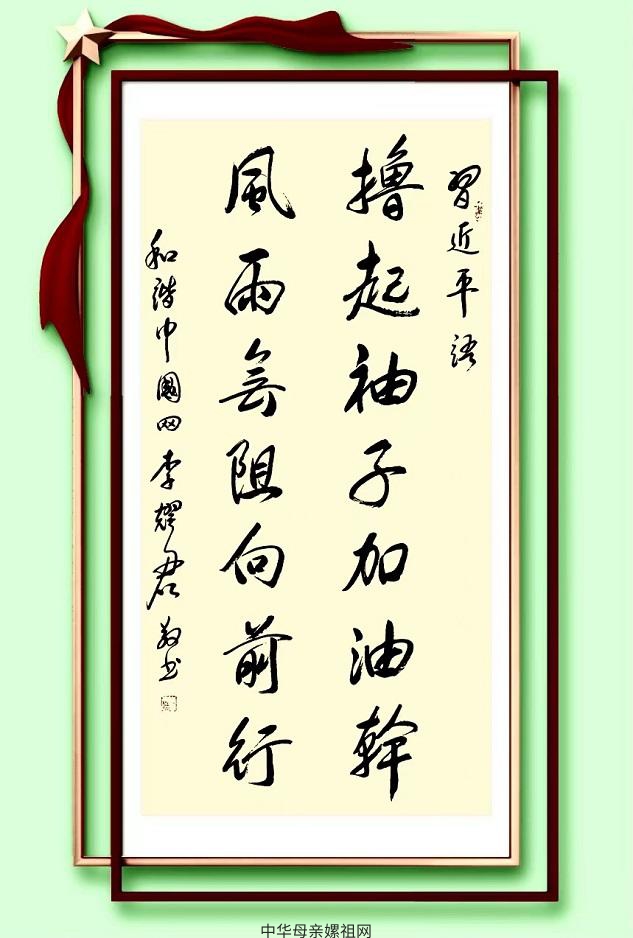 習近平語
撸起袖子加油幹
風雨無阻向前行
和谐中國网李耀君敬书
中华母亲嫘祖网